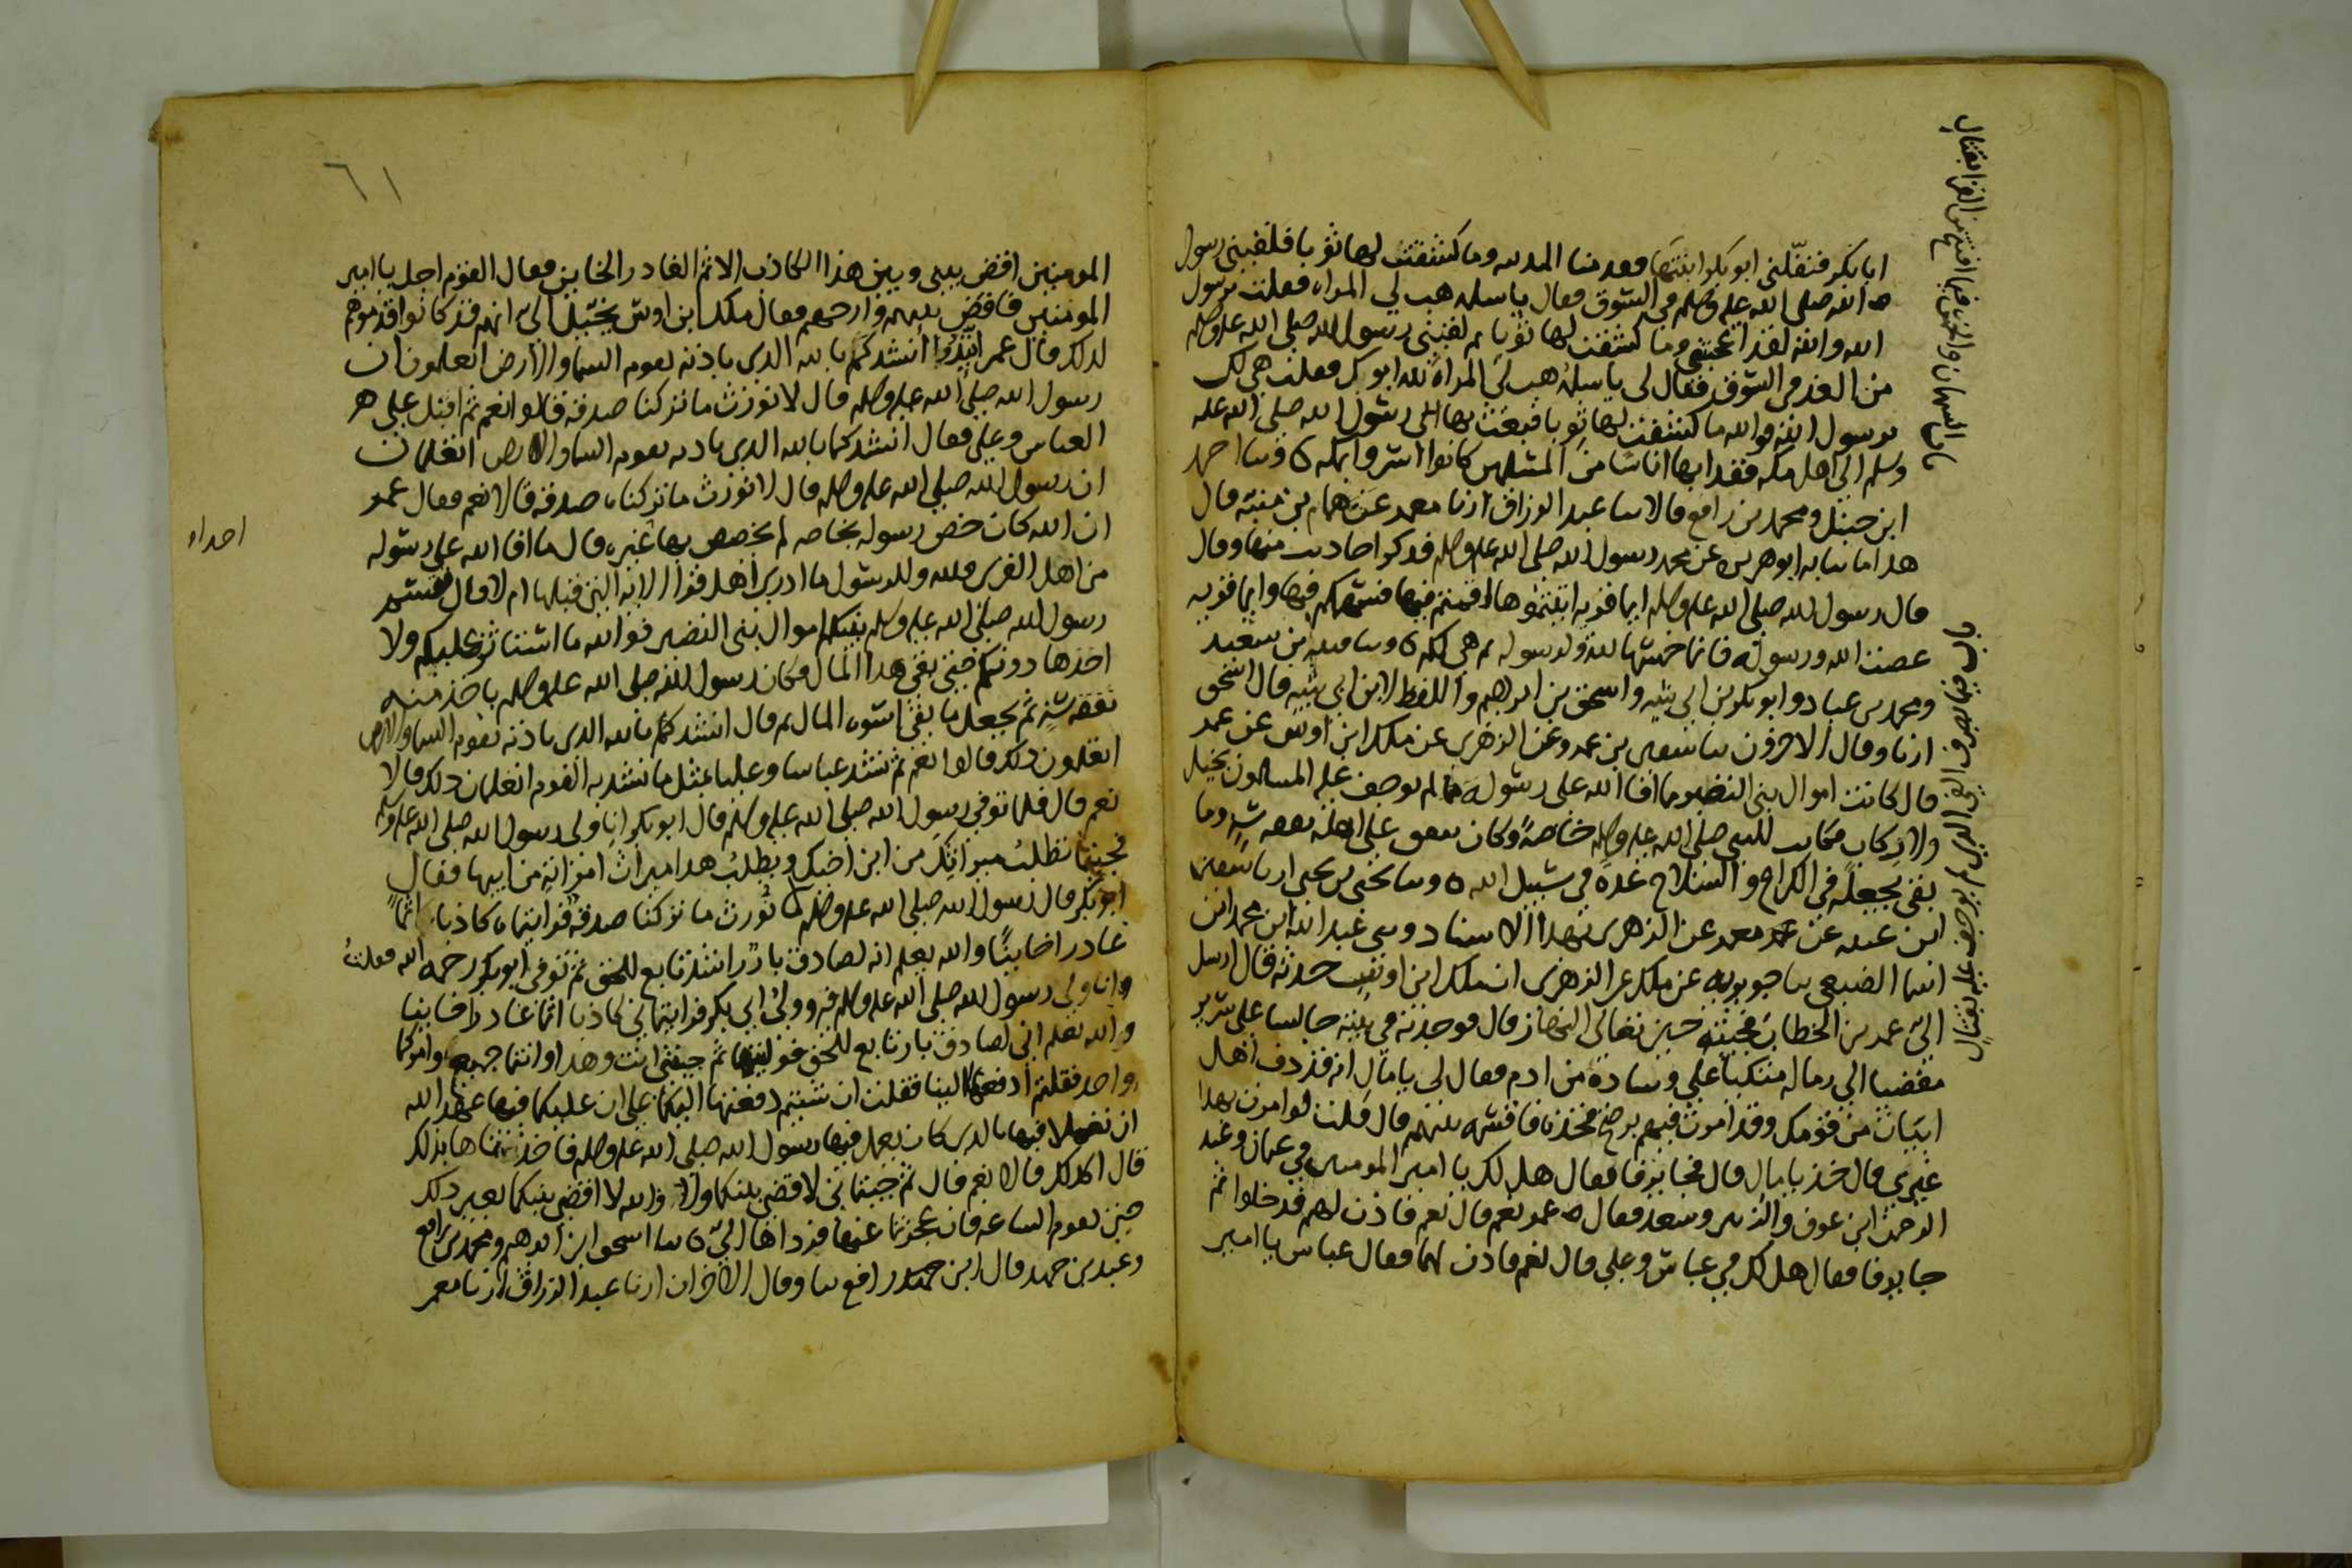 ابا بكر فنفّلني ابو بكر ابنتها فقدمنا المدينه وما كشفت لها ثوبا فلقيني رسول
الله صلى الله عليه وسلم في السوق فقال يا سلمه هب لي المراه فقلت يرسول
الله والله لقد اعجبتني وما كشفت لها ثوبا ثم لقيني رسول الله صلى الله عليه وسلم
من الغد في السوق فقال لي يا سلمه هب لي المراة لله ابوك فقلت هي لك
يرسول الله فوالله ما كشفت لها ثوبا فبعث بها الى رسول الله صلى الله عليه
وسلم الى اهل مكه ففدا بها اناسا من المسلمين كانوا اسروا بمكه ه وسا احمد
ابن حنبل ومحمد بن رافع قالا سا عبد الرزاق ارنا معمر عن همام بن منبه قال
هدا ما سا به ابو هريره عن محمد رسول الله صلى الله عليه وسلم فدكر احاديث منها وقال
قال رسول الله صلى الله عليه وسلم ايما قريه اتيتموها اقمتم فيها فسهمكم فيها وايما قريه
عصت الله ورسوله فان خمسها لله ولرسوله ثم هي لكم ه وسا قتيبه بن سعيد
ومحمد بن عباد وابو بكر بن ابي شيبه واسحق بن ابرهيم واللفظ لابن ابي شيبه قال اسحق
ارنا وقال الاخرون سا سفين بن عمرو عن الزهري عن ملك ابن اوس عن عمر
قال كانت اموال بني النضير مما افا الله على رسوله مما لم يوجف عليه المسلمون بخيل
ولا ركاب فكانت للنبي صلى الله عليه وسلم خاصةً وكان ينفق على اهله نفقه سنه وما
بقي يجعله في الكراع والسلاح عدة في سبيل الله ه وسا يحيى بن يحيى ارنا سفين
ابن عيينه عن معمر عن الزهري بهدا الاسناد وسي عبد الله ابن محمد ابن
اسما الضبعي سا جويريه عن ملك عن الزهري ان ملك ابن اوس حدثه قال ارسل
الىّ عمر بن الخطاب فجيته حين تعالى النهار قال فوجدته في بيته جالسا على سرير
مفضيا الى رماله متكيا على وسادة من ادم فقال لي يا مال انه قد دف اهل
ابيات من قومك وقد امرت فيهم برضخ فخذه فاقسمه بينهم قال قلت لو امرت بهدا
غيري قال خذه يا مال قال فجا يرفا فقال هل لك يا امير المومنين في عثمان وعبد
الرحمن ابن عوف والزبير وسعد فقال عمر نعم قال نعم فاذن لهم فدخلوا ثم
جا يرفا فقال هل لك في عباس وعلي قال نعم فاذن لهما فقال عباس يا امير
٦١
المومنين اقض بيني وبين هذا الكاذب الاثم الغادر الخاين فقال القوم اجل يا امير
المومنين فاقض بينهم وارحهم فقال ملك ابن اوس يخيل الي انهم قد كانوا قدموهم
لدلك فقال عمر اتيدوا انشدكم بالله الدي باذنه تقوم السما والارض اتعلمون ان
رسول الله صلى الله عليه وسلم قال لا نورث ما تركنا صدقه قالوا نعم ثم اقبل على
العباس وعلي فقال انشدكما بالله الدي باذنه تقوم السما والارض اتعلمان
ان رسول الله صلى الله عليه وسلم قال لا نورث ما تركناه صدقه قالا نعم فقال عمر
ان الله كان خص رسوله بخاصه لم يخصص بها غيره قال ما افا الله على رسوله
من اهل القرى فلله وللرسول ما ادري اهل قرا الايه التي قبلها ام لا قال فقسم
رسول الله صلى الله عليه وسلم بينكم اموال بني النضير فوالله ما استاثر عليكم ولا
اخذها دونكم حتى بقي هدا المال فكان رسول الله صلى الله عليه وسلم ياخذ منه
نفقه سنه ثم يجعل ما بقي اسوه المال ثم قال انشدكم بالله الدي باذنه تقوم السما والارض
اتعلمون ذلك قالوا نعم ثم نشد عباسا وعليا بمثل ما نشد به القوم اتعلمان ذلك قالا
نعم قال فلما توفي رسول الله صلى الله عليه وسلم قال ابو بكر انا ولي رسول الله صلى الله عليه وسلم
فجيتما تطلب ميراثك من ابن اخيك ويطلب هدا ميراث امراته من ابيها فقال
ابو بكر قال رسول الله صلى الله عليه وسلم لا نورث ما تركنا صدقه فرايتماه كاذبا اثماً
غادرا خاينًا والله يعلم انه لصادق بارٌ راشد تابع للحق ثم توفي ابو بكر رحمه الله فقلت
انا ولي رسول الله صلى الله عليه وسلم وولي ابي بكر فرايتماني كاذبا اثما غادرا خاينا
والله يعلم اني لصادق بار تابع للحق فوليتها ثم جيتني انت وهدا وانتما جميع وامركما
واحد فقلتم ادفعها الينا فقلت ان شيتم دفعتها اليكما على ان عليكما فيها عهد الله
ان تعملا فيها بالدي كان يعمل فيها رسول الله صلى الله عليه وسلم فاخذتماها بذلك
قال اكذلك قالا نعم قال ثم جيتماني لاقضي بينكما ولا والله لا اقضي بينكما بغير ذلك
حتى تقوم الساعه فان عجزتما عنها فرداها اليّ ه سا اسحق ابن ابرهيم ومحمد بن رافع
وعبد بن حميد قال ابن رافع سا وقال الاخران ارنا عبد الرزاق ارنا معمر